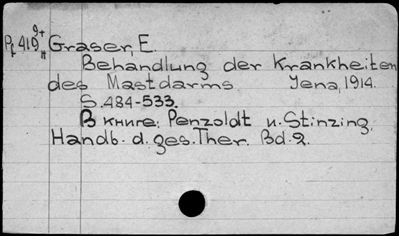 Pf 419 9+ Graser, E.
Behandlung der Krankheiten
des Mastdarms Jena, 1914.
S. 484-533.
В книге: Penzoldt u. Stinzing.
Handb. d. ges. Ther. Bd. 2.